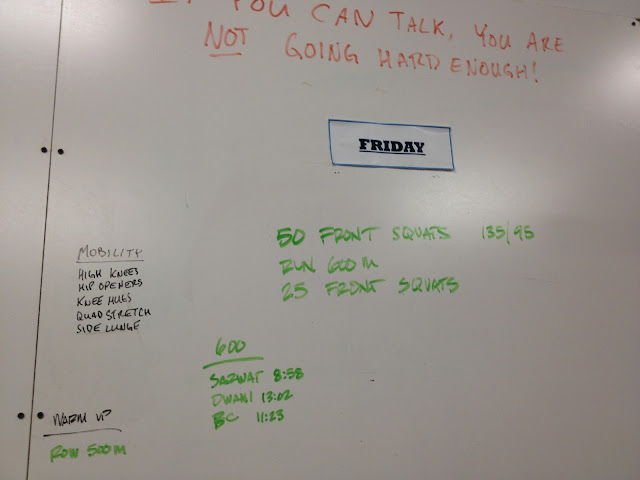 IF YOU CAN TALK, YOU ARE
NOT GOING HARD ENOUGH!
FRIDAY
50 FRONT SQUATS 135/95
RUN 600 M
25 FRONT SQUATS
MOBILITY
HIGH KNEES
HIP OPENERS
KNEE HUGS
QUAD STRETCH
SIDE LUNGE
600
SARWAT 8:58
DWANI 13:02
BC 11:23
WARM UP
ROW 500 M